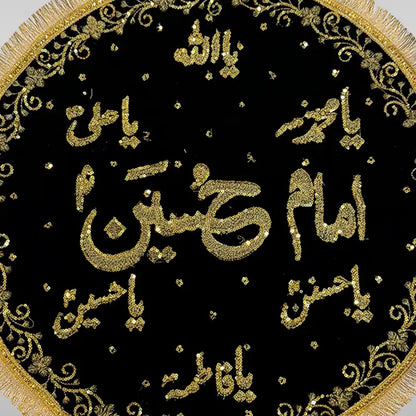 یا الله
یا محمد یا علی
امام حسین
یا حسن یا حسین
یا فاطمه